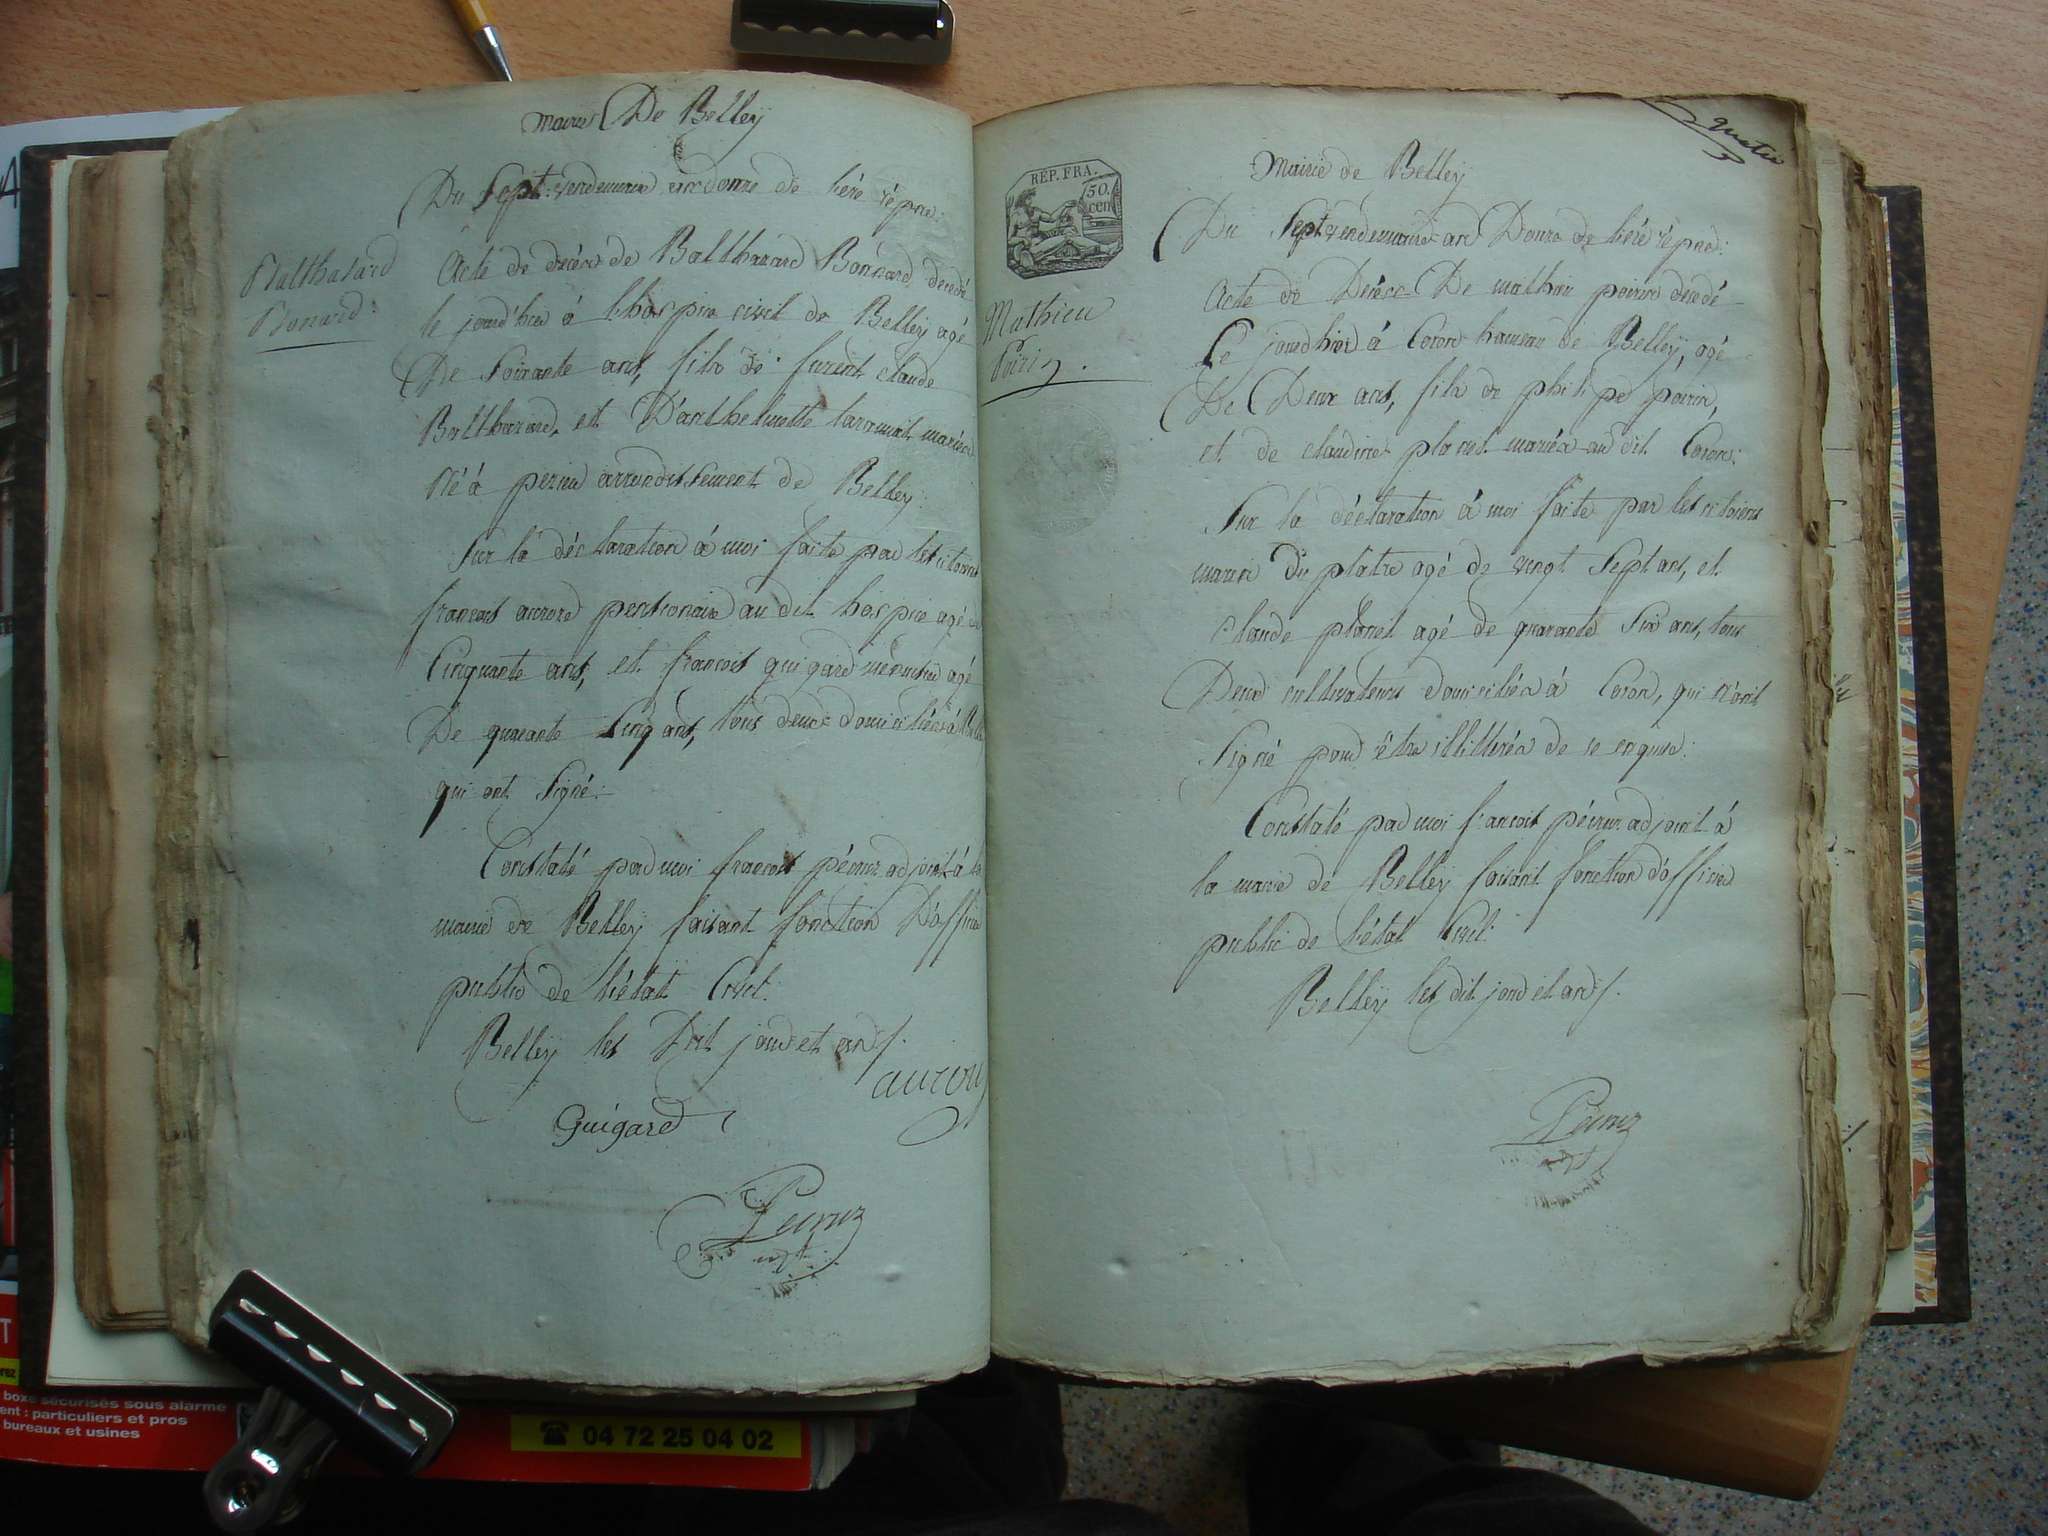 Mairie De Belley
Du Sept vendemiaire an douze de l'ére répne:
Balthasard
Bonard:
Acte de décès de Balthazard Bonnard décédé
le jourd'hier à l'hospice civil de Belley agé
De Soixante ans, fils de furent claude
Balthazard, et D'anthelmette mariés
Né à arrondissement de Belley:
Sur la déclaration à moi faite par les citoiens
françois aurore pentionaire au dit hospice agé de
Cinquante ans, et françois guigard menusier agé
De quarante cinq ans, tous deux domiciliés à Belley
qui ont Signé:
Constaté par moi françois pécruz adjoint à la
mairie de Belley faisant fonction D'officier
public de l'état Civil:
Belley les Dit jour et an /.
Guigard
Pecruz
adjt
quatre
REP. FRA.
50.
cen
Mairie de Belley
Du Sept vendemiaire an Douze de l'ére répne:
Mathieu
Poirin.
Acte de Décès De mathieu poirin décédé
Le jourd'hier à Coron hameau de Belley, agé
De Deux ans, fils de philipe poirin,
et de claudine planet mariés au dit Coron:
Sur la déclaration à moi faite par les citoiens
marin Du platre agé de vingt Sept ans, et
Claude planet agé de quarante Six ans, tous
Deux cultivateurs domiciliés à Coron, qui n'ont
Signé pour être illitérés de ce enquis:
Constaté par moi françois pécruz adjoint à
la mairie de Belley faisant fonction d'officier
public de l'état Civil:
Belley les dit jour et an /.
Pecruz
adjt
boxe sécurisés sous alarme
ent : particuliers et pros
bureaux et usines
☎ 04 72 25 04 02